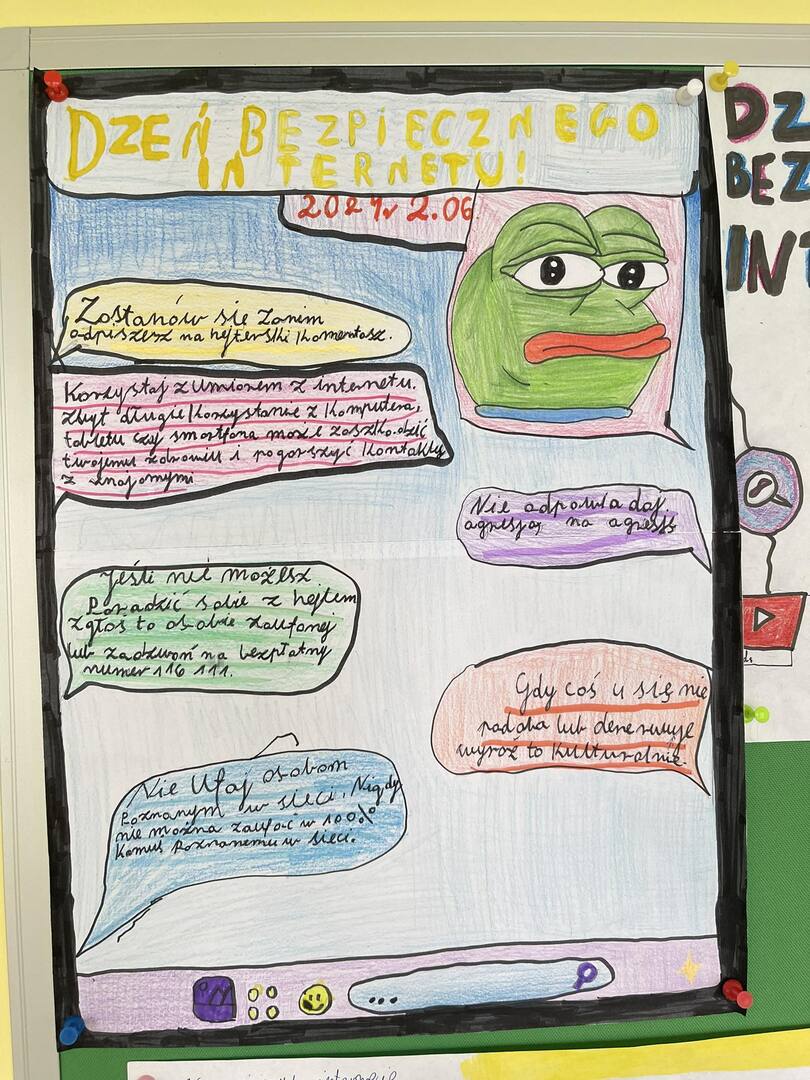 DZEŃ BEZPIECZNEGO
INTERNETU!
2024r 2.06
Zostanów się zanim
odpiszesz na hejterski komentasz.
Korzystaj z umiorem z internetu.
zbyt długie korzystanie z komputera,
tabletu czy smartfona może zaszkodzić
twojemu zdrowiu i pogorszyć kontakty
z znajomymi
Nie odpowiadaj.
agresją na agresję
Jeśli nie możesz
Poradzić sobie z hejtem
zgłoś to osobie zaufanej
lub zadzwoń na bezpłatny
numer 116 111.
Gdy coś u się nie
podoba lub denerwuje
wyroź to kulturalnie
Nie Ufaj osobom
Poznanym w sieci. Nigdy
nie można zaufać w 100%
komuś Poznanemu w sieci.
DZ
BEZ
INT